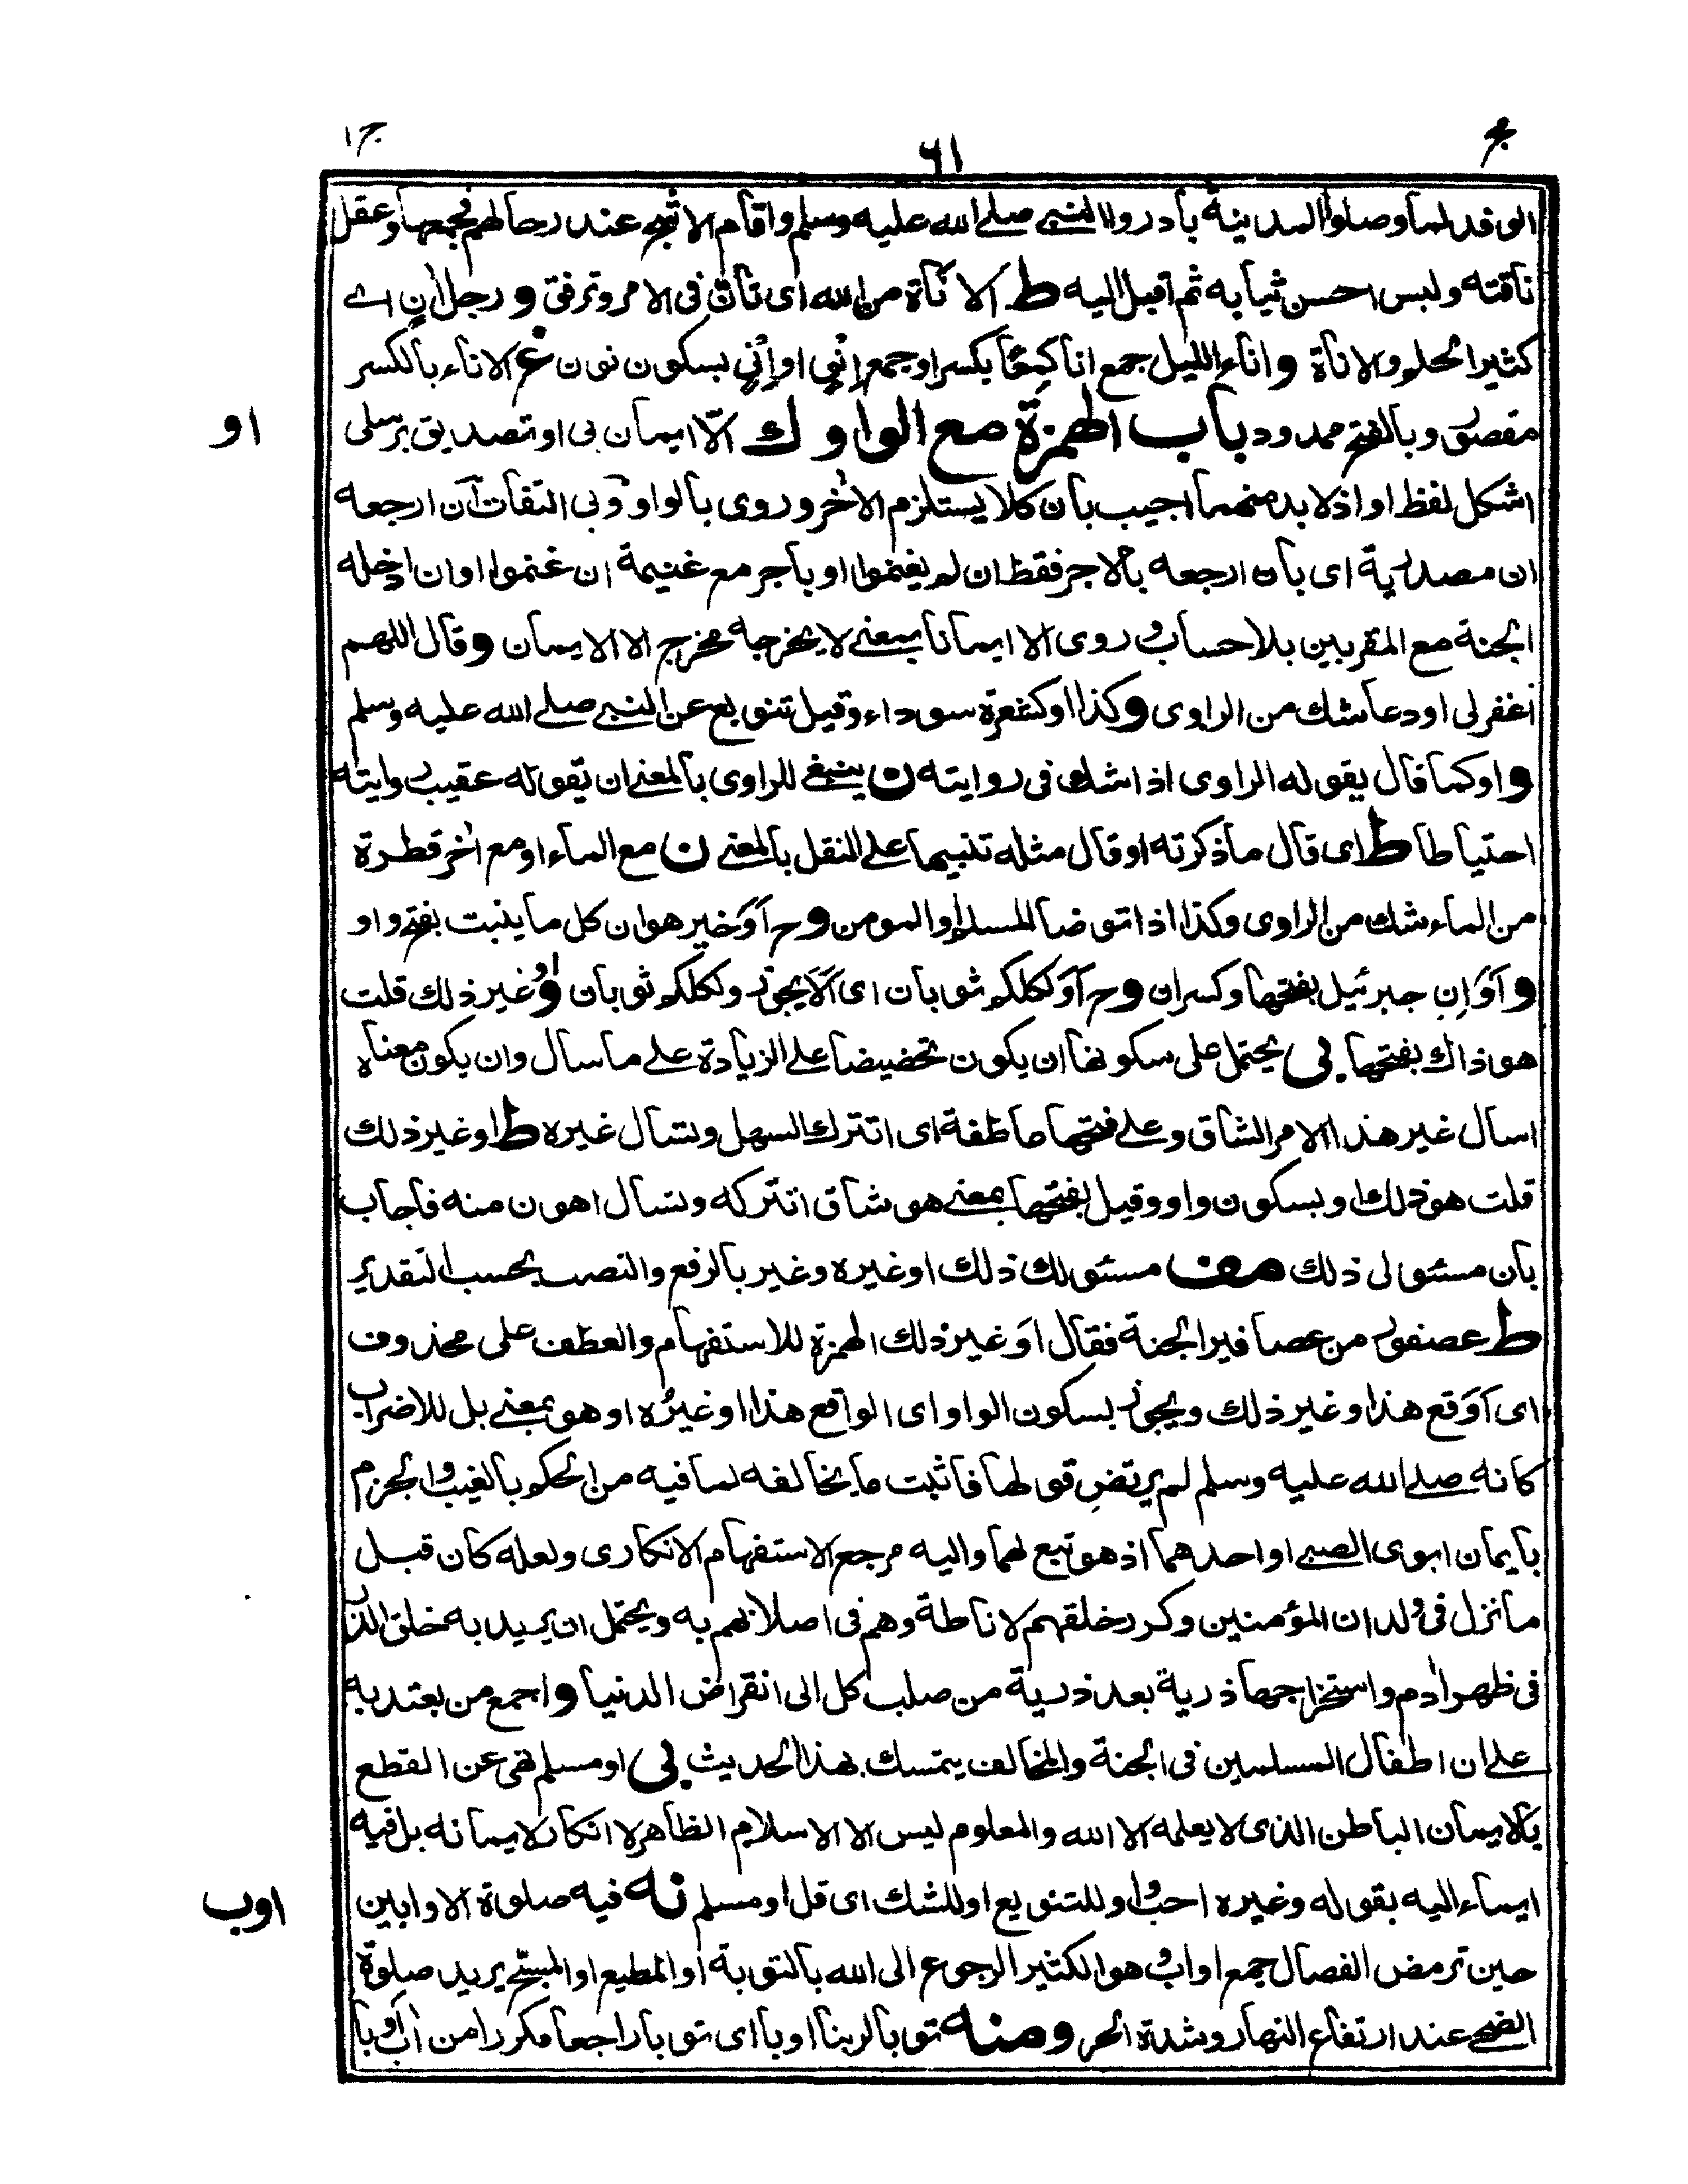 ج ١
٦١
مج
الوفد لما وصلوا المدينة بادروا النبي صلے الله عليه وسلم واقام الاشج عند رحالهم فجمعها وعقل
ناقته ولبس احسن ثيابه ثم اقبل اليه ط الاناة من الله اى تأن فى الامر وترفق و رجل اٰنٍ اے
كثير الحلم والاناة و اناء الليل جمع انا كمعًا بكسر او جمع اِنْى او اِنْى بسكون نون غ الاناء بالكسر
مقصور وبالفتح ممدود باب الهمزة مع الواو ك الا ايمان بى او تصديق برسلى
اشكل لفظ او اذ لا بد منهما اجيب بان كلا يستلزم الاٰخر وروى بالواو و بى التفات اَن ارجعه
ان مصدرية اى بان ارجعه بالاجر فقط ان لم يغنموا او باجر مع غنيمة ان غنموا او ان ادخله
الجنة مع المقربين بلا حساب و روى الا ايمانا بمعنے لا يخرجه مخرج الا الايمان و قال اللهم
اغفر لى او دعا شك من الراوى و كذا او كشعرة سوداء وقيل تنويع عن النبى صلے الله عليه وسلم
و او كما قال يقوله الراوى اذا شك فى روايته ن ينبغے للراوى بالمعنے ان يقوله عقيب روايته
احتياطا ط اى قال ما ذكرته او قال مثله تنبيها علے النقل بالمعنے ن مع الماء او مع اٰخر قطرة
من الماء شك من الراوى وكذا اذا توضا المسلم او المومن و ح اَوَخير هو ان كل ما ينبت بفتح واو
و اَوَ اِن جبرئيل بفتحها وكسر ان و ح اَوَ لكلكم ثوبان اى اَلا يجوز ولكلكم ثوبان و اَوَ غير ذلك قلت
هو ذاك بفتحها بى يحتمل على سكونها ان يكون تحضيضا علے الزيادة علے ما سال وان يكون معناه
اسال غير هذا الامر الشاق وعلے فتحها عاطفة اى اتترك السهل وتسال غيره ط او غير ذلك
قلت هو ذلك او بسكون واو وقيل بفتحها بمعنے هو شاق اتتركه وتسال اهون منه فاجاب
بان مسئولى ذلك مف مسئولك ذلك او غيره وغير بالرفع والنصب بحسب التقدير
ط عصفور من عصافير الجنة فقال اَوَ غير ذلك الهمزة للاستفهام والعطف على محذوف
اى اَوَقع هذا وغير ذلك ويجوز بسكون الواو اى الواقع هذا او غيرُه او هو بمعنے بل للاضراب
كانه صلے الله عليه وسلم لم يرتضِ قولها فاثبت ما يخالفه لما فيه من الحكم بالغيب والجزم
بايمان ابوى الصبے او احدهما اذ هو تبع لهما واليه مرجع الاستفهام الانكارى ولعله كان قبل
ما نزل فى ولدان المؤمنين وكرر خلقهم لاناطة وهم فى اصلابهم به ويحتمل ان يريد به خلق الذر
فى ظهر اٰدم واستخراجها ذرية بعد ذرية من صلب كل الى انقراض الدنيا و اجمع من يعتد به
علے ان اطفال المسلمين فى الجنة والمخالف يتمسك بهذا الحديث بى او مسلم نهى عن القطع
بالايمان الباطن الذى لا يعلمه الا الله والمعلوم ليس الا الاسلام الظاهر لا انكارا لايمانه بل فيه
ايماء اليه بقوله وغيره احب و او للتنويع او للشك اى قل او مسلم نه فيه صلوة الاوابين
حين ترمض الفصال جمع اواب و هو الكثير الرجوع الى الله بالتوبة او المطيع او المسبح يريد صلوة
الضحے عند ارتفاع النهار وشدة الحر و منه توبا لربنا اوبا اى توبا راجعا مكررا من اٰب اوبا
او
اوب